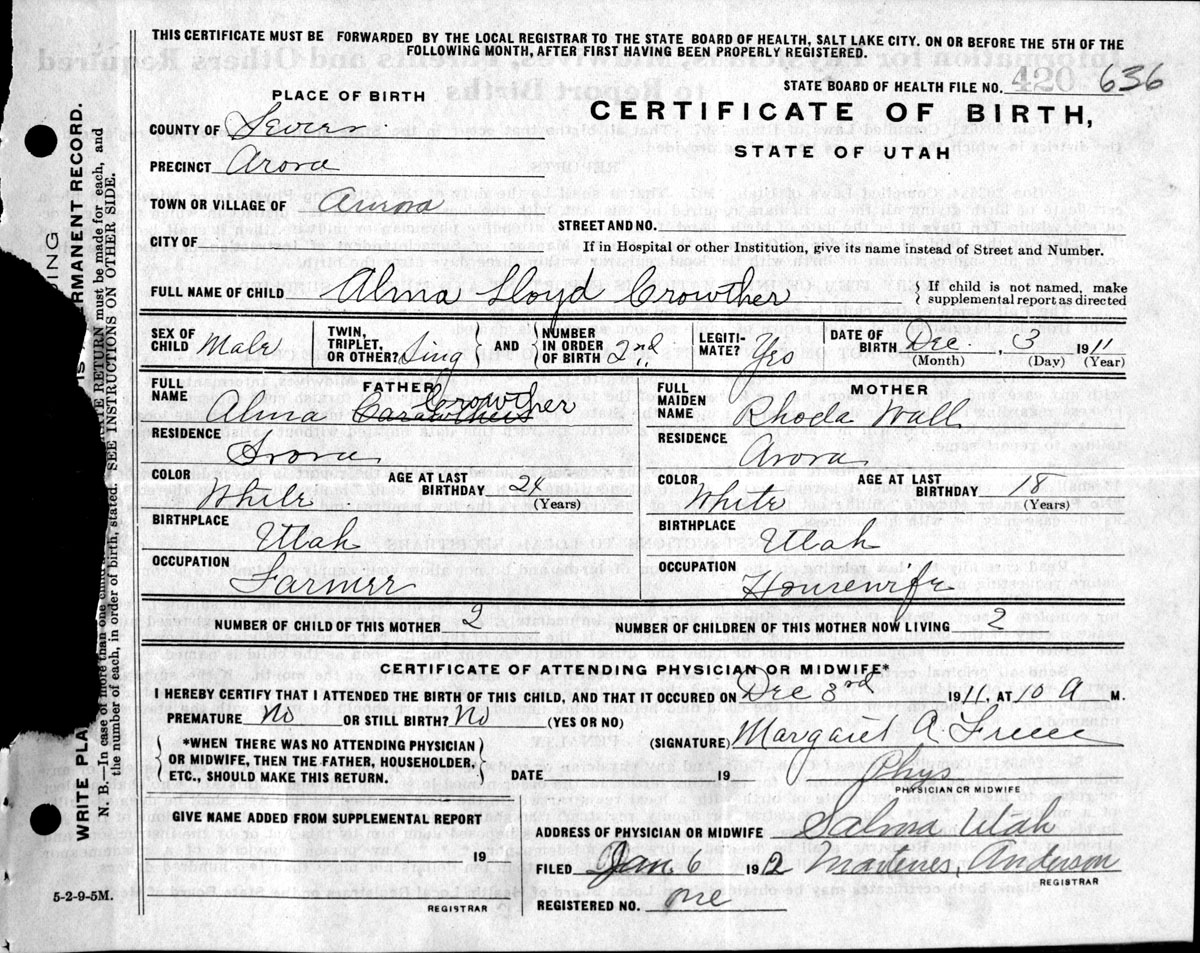 THIS CERTIFICATE MUST BE FORWARDED BY THE LOCAL REGISTRAR TO THE STATE BOARD OF HEALTH, SALT LAKE CITY. ON OR BEFORE THE 5TH OF THE
FOLLOWING MONTH, AFTER FIRST HAVING BEEN PROPERLY REGISTERED.
STATE BOARD OF HEALTH FILE NO. 420 636
PLACE OF BIRTH
CERTIFICATE OF BIRTH,
STATE OF UTAH
COUNTY OF Sevier
PRECINCT Arora
TOWN OR VILLAGE OF Aurora
STREET AND NO.
CITY OF
If in Hospital or other Institution, give its name instead of Street and Number.
FULL NAME OF CHILD Alma Lloyd Crowther { If child is not named, make
supplemental report as directed
SEX OF CHILD Male TWIN, TRIPLET, OR OTHER? Sing } AND { NUMBER IN ORDER OF BIRTH 2nd LEGITI-MATE? Yes DATE OF BIRTH Dec. , 3 1911
(Month) (Day) (Year)
FATHER
FULL NAME Alma Crowther
RESIDENCE Arora
COLOR White AGE AT LAST BIRTHDAY 24 (Years)
BIRTHPLACE Utah
OCCUPATION Farmer
MOTHER
FULL MAIDEN NAME Rhoda Wall
RESIDENCE Arora
COLOR White AGE AT LAST BIRTHDAY 18 (Years)
BIRTHPLACE Utah
OCCUPATION Housewife
NUMBER OF CHILD OF THIS MOTHER 2 NUMBER OF CHILDREN OF THIS MOTHER NOW LIVING 2
CERTIFICATE OF ATTENDING PHYSICIAN OR MIDWIFE*
I HEREBY CERTIFY THAT I ATTENDED THE BIRTH OF THIS CHILD, AND THAT IT OCCURED ON Dec 3rd 1911, AT 10 A M.
PREMATURE No OR STILL BIRTH? No (YES OR NO)
{ *WHEN THERE WAS NO ATTENDING PHYSICIAN
OR MIDWIFE, THEN THE FATHER, HOUSEHOLDER,
ETC., SHOULD MAKE THIS RETURN. }
(SIGNATURE) Margaret A.
DATE 19 Phys
PHYSICIAN OR MIDWIFE
GIVE NAME ADDED FROM SUPPLEMENTAL REPORT
19
REGISTRAR
ADDRESS OF PHYSICIAN OR MIDWIFE Salina Utah
FILED Jan. 6 1912 Anderson
REGISTRAR
REGISTERED NO. one
5-2-9-5M.
WRITE PLA
DING
RMANENT RECORD.
N. B.—In case of more than one child
RETURN must be made for each, and
the number of each, in order of birth, stated. SEE INSTRUCTIONS ON OTHER SIDE.